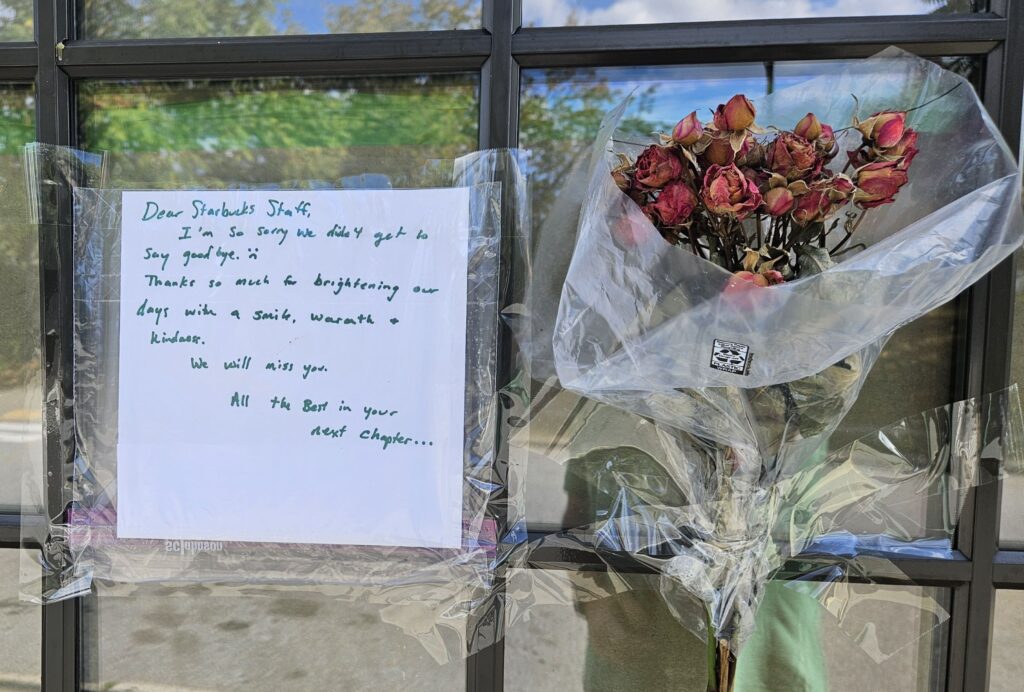 Dear Starbucks Staff,
I'm so sorry we didn't get to
say goodbye. :(
Thanks so much for brightening our
days with a smile, warmth +
kindness.
We will miss you.
All the Best in your
next chapter...
SC Johnson